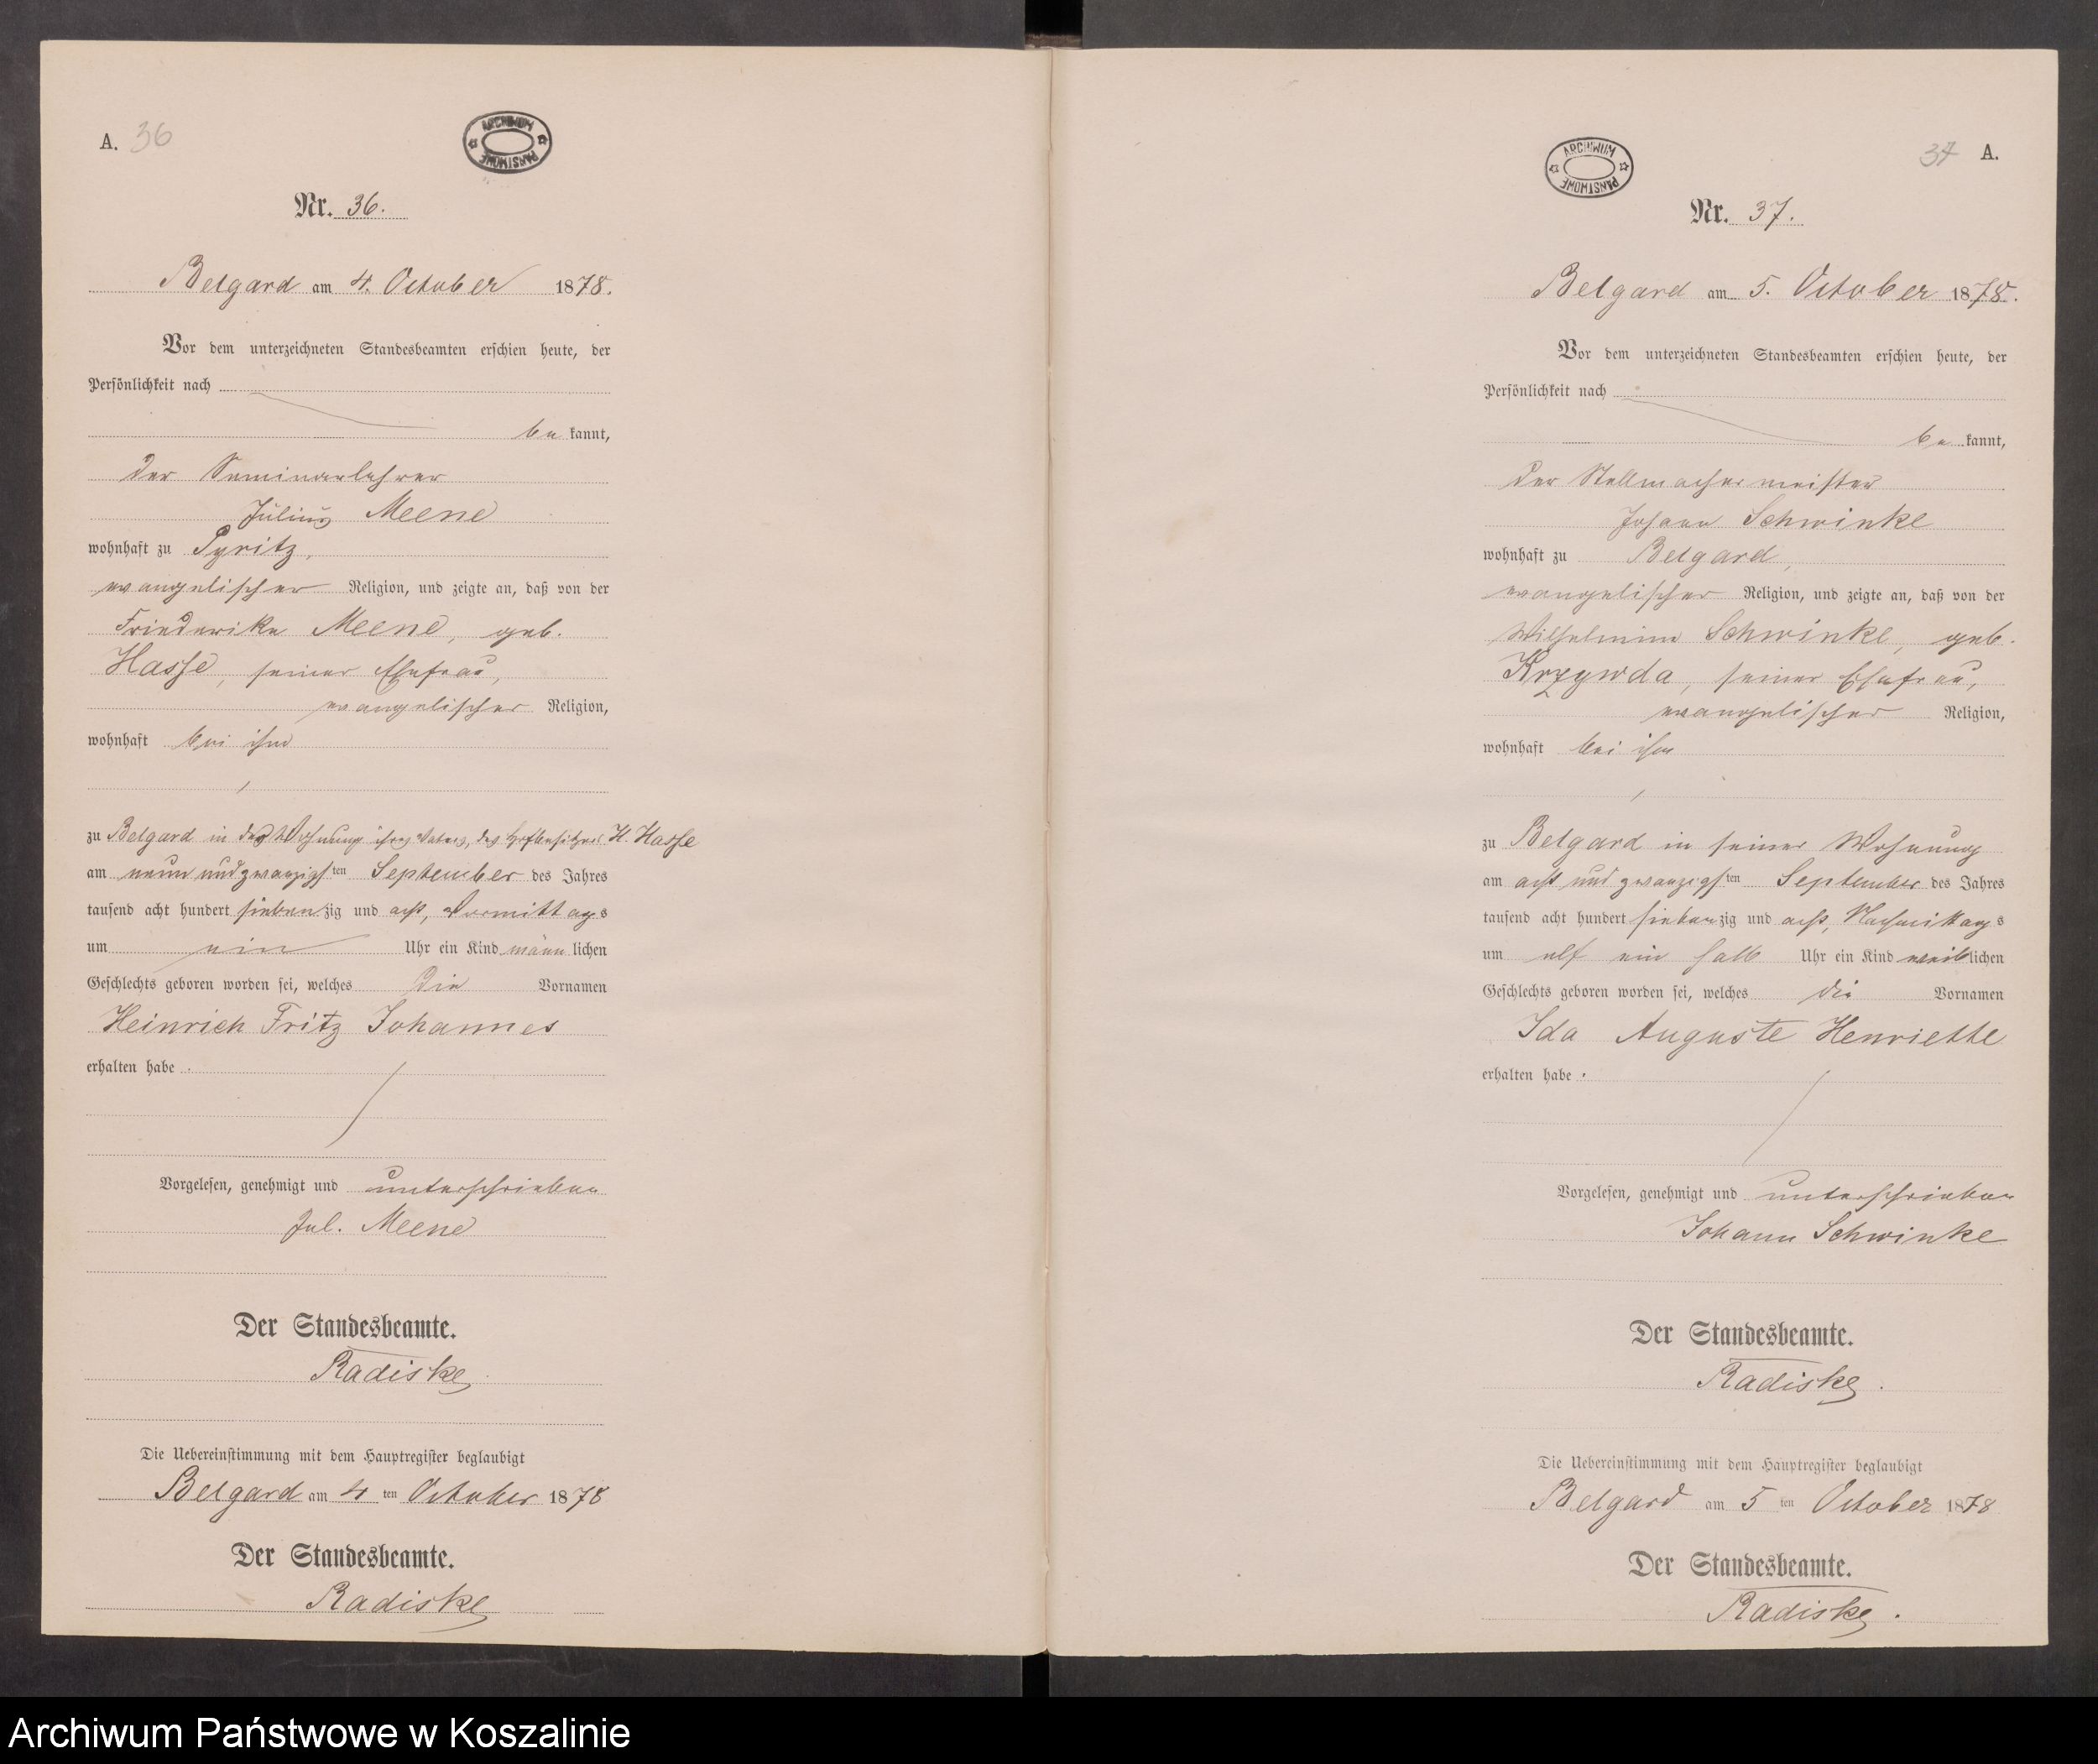 A. 36
ARCHIWUM PAŃSTWOWE
Nr. 36.
Belgard am 4. October 1878.
Vor dem unterzeichneten Standesbeamten erschien heute, der
Persönlichkeit nach
be kannt,
der Seminarlehrer
Julius Meene
wohnhaft zu Pyritz,
evangelischer Religion, und zeigte an, daß von der
Friederike Meene, geb.
Hasse, seiner Ehefrau,
evangelischer Religion,
wohnhaft bei ihm
zu Belgard in der Wohnung ihres Vaters, des Hofbesitzers H. Hasse
am neun und zwanzigsten September des Jahres
tausend acht hundert siebenzig und acht, Vormittags
um ein Uhr ein Kind männlichen
Geschlechts geboren worden sei, welches die Vornamen
Heinrich Fritz Johannes
erhalten habe.
Vorgelesen, genehmigt und unterschrieben
Jul. Meene
Der Standesbeamte.
Radiske
Die Uebereinstimmung mit dem Hauptregister beglaubigt
Belgard am 4ten October 1878
Der Standesbeamte.
Radiske
37 A.
ARCHIWUM PAŃSTWOWE
Nr. 37.
Belgard am 5. October 1878.
Vor dem unterzeichneten Standesbeamten erschien heute, der
Persönlichkeit nach
be kannt,
der Stellmachermeister
Johann Schwinke
wohnhaft zu Belgard,
evangelischer Religion, und zeigte an, daß von der
Wilhelmine Schwinke, geb.
Krzywda, seiner Ehefrau,
evangelischer Religion,
wohnhaft bei ihm
zu Belgard in seiner Wohnung
am acht und zwanzigsten September des Jahres
tausend acht hundert siebenzig und acht, Nachmittags
um elf ein halb Uhr ein Kind weiblichen
Geschlechts geboren worden sei, welches die Vornamen
Ida Auguste Henriette
erhalten habe.
Vorgelesen, genehmigt und unterschrieben
Johann Schwinke
Der Standesbeamte.
Radiske.
Die Uebereinstimmung mit dem Hauptregister beglaubigt
Belgard am 5ten October 1878
Der Standesbeamte.
Radiske.
Archiwum Państwowe w Koszalinie